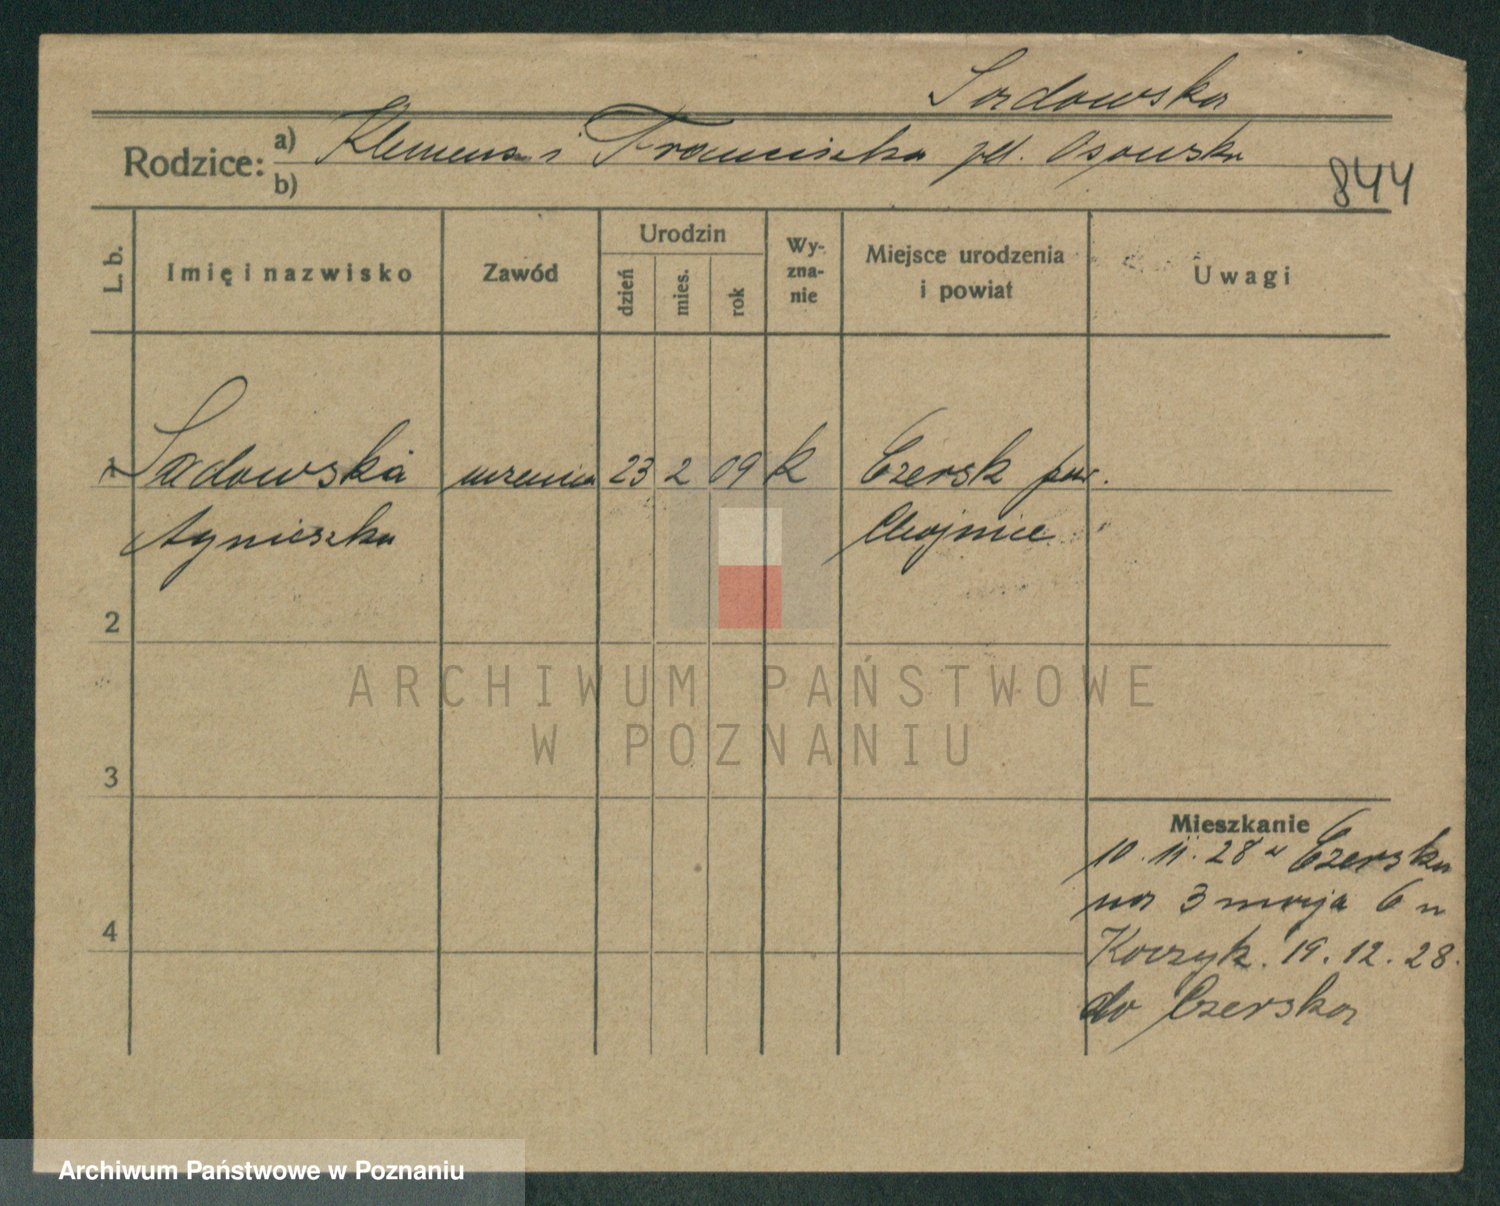 Sadowska
Rodzice: a) Klemens i Franciszka zd. Osowska
b)
844
L. b.
Imię i nazwisko
Zawód
Urodzin
dzień
mies.
rok
Wy-
zna-
nie
Miejsce urodzenia
i powiat
Uwagi
1 Sadowska uczenica 23 2 09 k Czersk pow.
Agnieszka Chojnice
2
3
4
ARCHIWUM PAŃSTWOWE
W POZNANIU
Mieszkanie
10.11.28 z Czerska
na 3 maja 6 u
19.12.28.
do Czerska
Archiwum Państwowe w Poznaniu